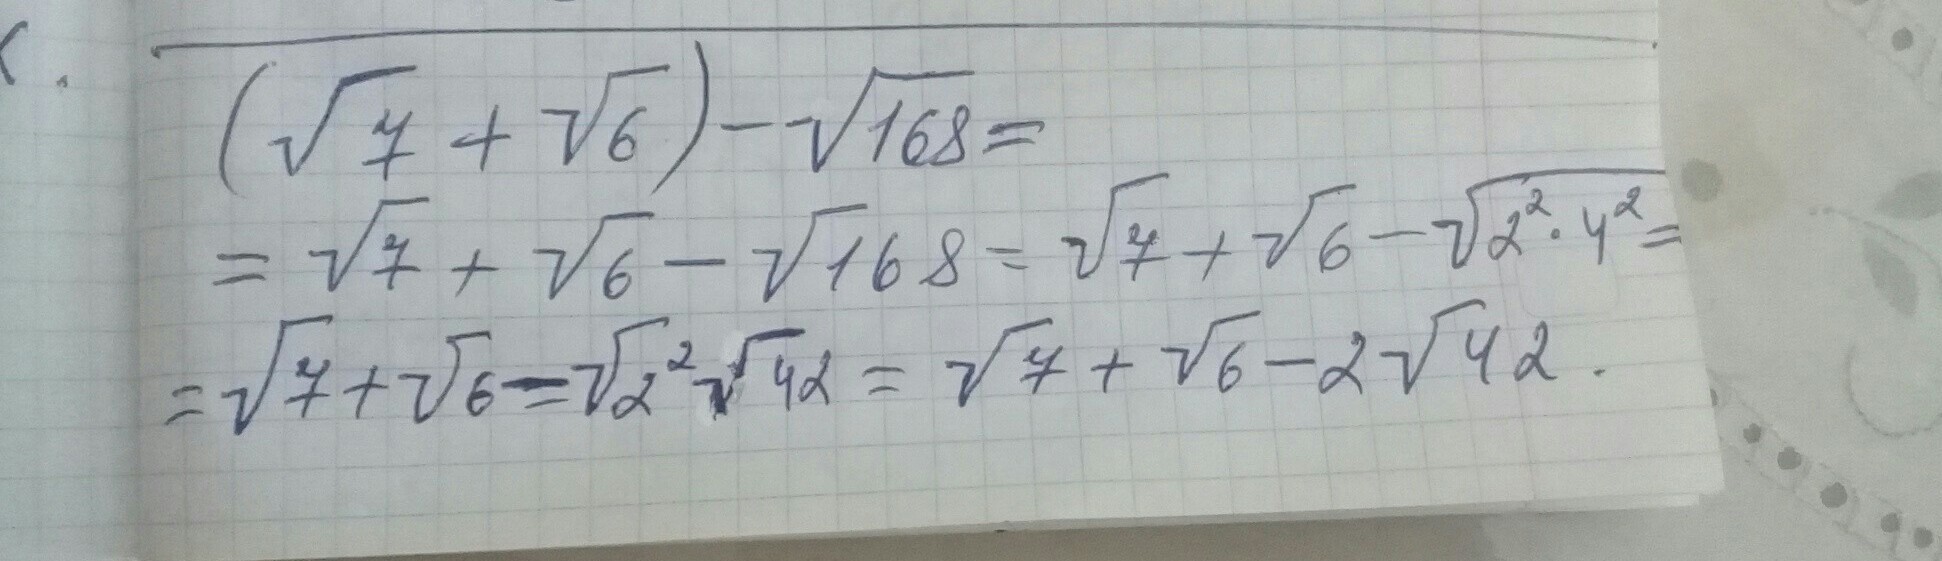 (√7 + √6) - √168 =
= √7 + √6 - √168 = √7 + √6 - √2²·4² =
= √7 + √6 - √2² √42 = √7 + √6 - 2√42.